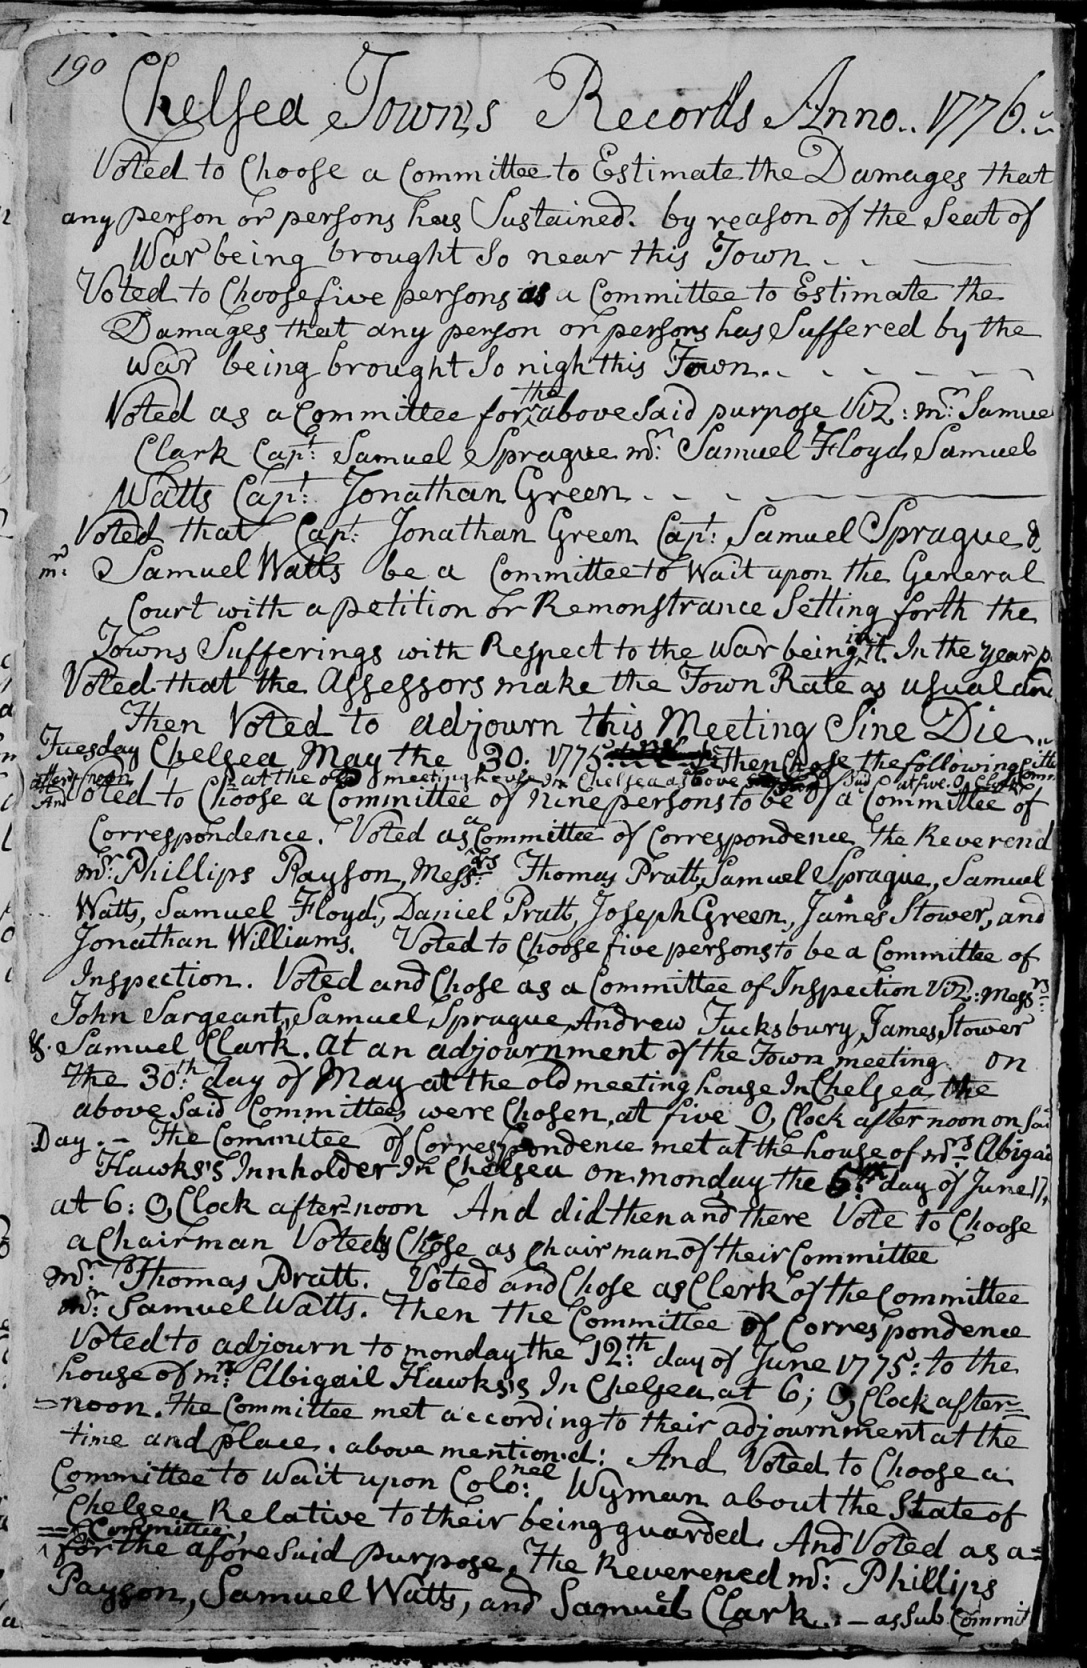 190
Chelsea Towns Records Anno.. 1776.
Voted to Choose a Committee to Estimate the Damages that
any person or persons has Sustained. by reason of the Seat of
War being brought So near this Town
Voted to Choose five persons as a Committee to Estimate the
Damages that any person or persons has Suffered by the
War being brought So nigh this Town
Voted as a Committee for the above Said purpose Viz: mr. Samuel
Clark Capt: Samuel Sprague mr: Samuel Floyd Samuel
Watts Capt: Jonathan Green
Voted that Capt: Jonathan Green Capt: Samuel Sprague &
mr: Samuel Watts be a Committee to Wait upon the General
Court with a petition or Remonstrance Setting forth the
Towns Sufferings with Respect to the War being in it. In the year
Voted that the Assessors make the Town Rate as usual and
Then Voted to adjourn this Meeting Sine Die
Tuesday Chelsea May the 30. 1775 then Chose the following
afternoon at the old meetinghouse In Chelsea above at five O,Clock
And Voted to Choose a Committee of Nine persons to be of a Committee of
Correspondence. Voted as a Committee of Correspondence The Reverend
mr: Phillips Payson, Messrs: Thomas Pratt, Samuel Sprague, Samuel
Watts, Samuel Floyd, Daniel Pratt, Joseph Green, James Stower, and
Jonathan Williams. Voted to Choose five persons to be a Committee of
Inspection. Voted and Chose as a Committee of Inspection Viz: Messrs:
John Sargeant, Samuel Sprague, Andrew Tucksbury, James Stower
&. Samuel Clark. at an adjournment of the Town meeting on
the 30th: day of May at the old meeting house In Chelsea the
above Said Committees were Chosen, at five O, Clock afternoon on Said
Day. - The Commitee of Correspondence met at the house of mrs: Abigail
Hawks's Innholder In Chelsea on monday the 5th: day of June
at 6: O,Clock after-noon And did then and there Vote to Choose
a Chairman Voted & Chose as Chairman of their Committee
mr: Thomas Pratt. Voted and Chose as Clerk of the Committee
mr: Samuel Watts. Then the Committee of Correspondence
Voted to adjourn to monday the 12:th day of June 1775: to the
house of mrs: Abigail Hawks's In Chelsea at 6; O,Clock after=
=noon. The Committee met according to their adjournment at the
time and place. above mention.d: And Voted to Choose a
Committee to wait upon Colo:nel Wyman about the State of
Chelsea Relative to their being guarded And Voted as a=
= Committee,
for the aforesaid purpose, The Reverened mr: Phillips
Payson, Samuel Watts, and Samuel Clark. : - as Sub Commit